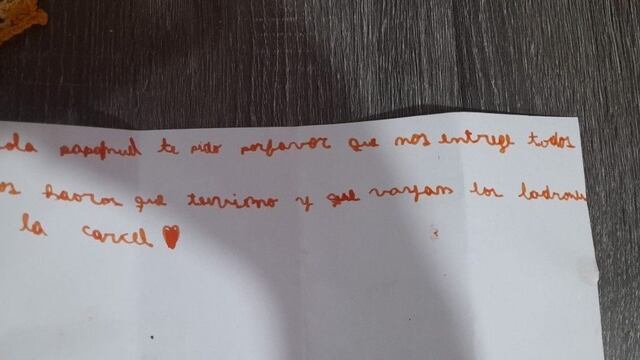 ola papanuel te pido porfavor que nos entrege todos
os haoros que tenrismo y que vayam los ladrones
la carcel